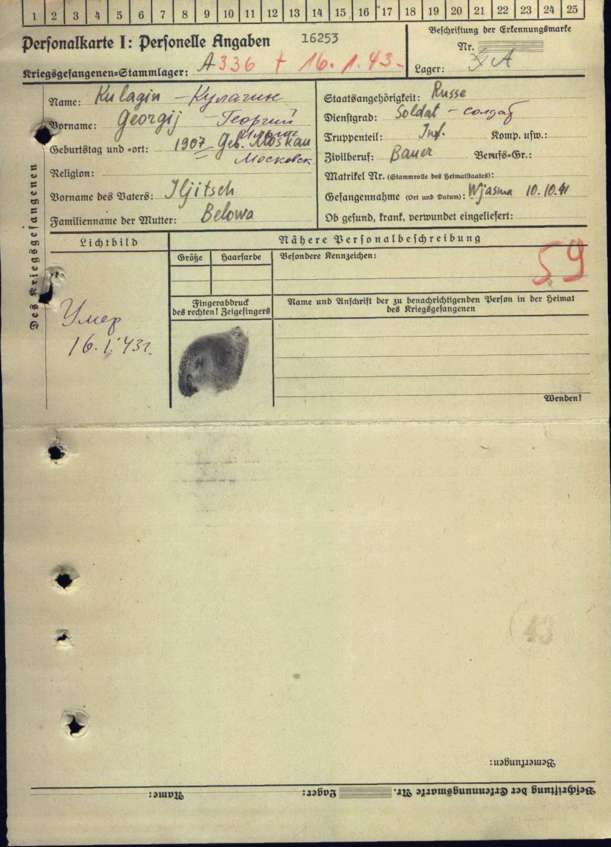 1 2 3 4 5 6 7 8 9 10 11 12 13 14 15 16 17 18 19 20 21 22 23 24 25
Personalkarte I: Personelle Angaben
16253
Beschriftung der Erkennungsmarke
Nr.
Kriegsgefangenen=Stammlager: A 336 + 16.1.43.
Lager: A
Des Kriegsgefangenen
Name: Kulagin – Кулагин
Vorname: Georgij Георгий
Geburtstag und =ort: 1907 Geb. Moskau
Московск
Religion:
Vorname des Vaters: Iljitsch
Familienname der Mutter: Belowa
Staatsangehörigkeit: Russe
Dienstgrad: Soldat – солдат
Truppenteil: Inf. Komp. usw.:
Zivilberuf: Bauer Berufs=Gr.:
Matrikel Nr. (Stammrolle des Heimatstaates):
Gefangennahme (Ort und Datum): Wjasma 10.10.41
Ob gesund, krank, verwundet eingeliefert:
Lichtbild
Nähere Personalbeschreibung
Größe Haarfarbe Besondere Kennzeichen:
59
Fingerabdruck
des rechten! Zeigefingers
Name und Anschrift der zu benachrichtigenden Person in der Heimat
des Kriegsgefangenen
Умер
16.1.43г.
Wenden!
43
Bemerkungen:
Beschriftung der Erkennungsmarke Nr. Lager: Name: